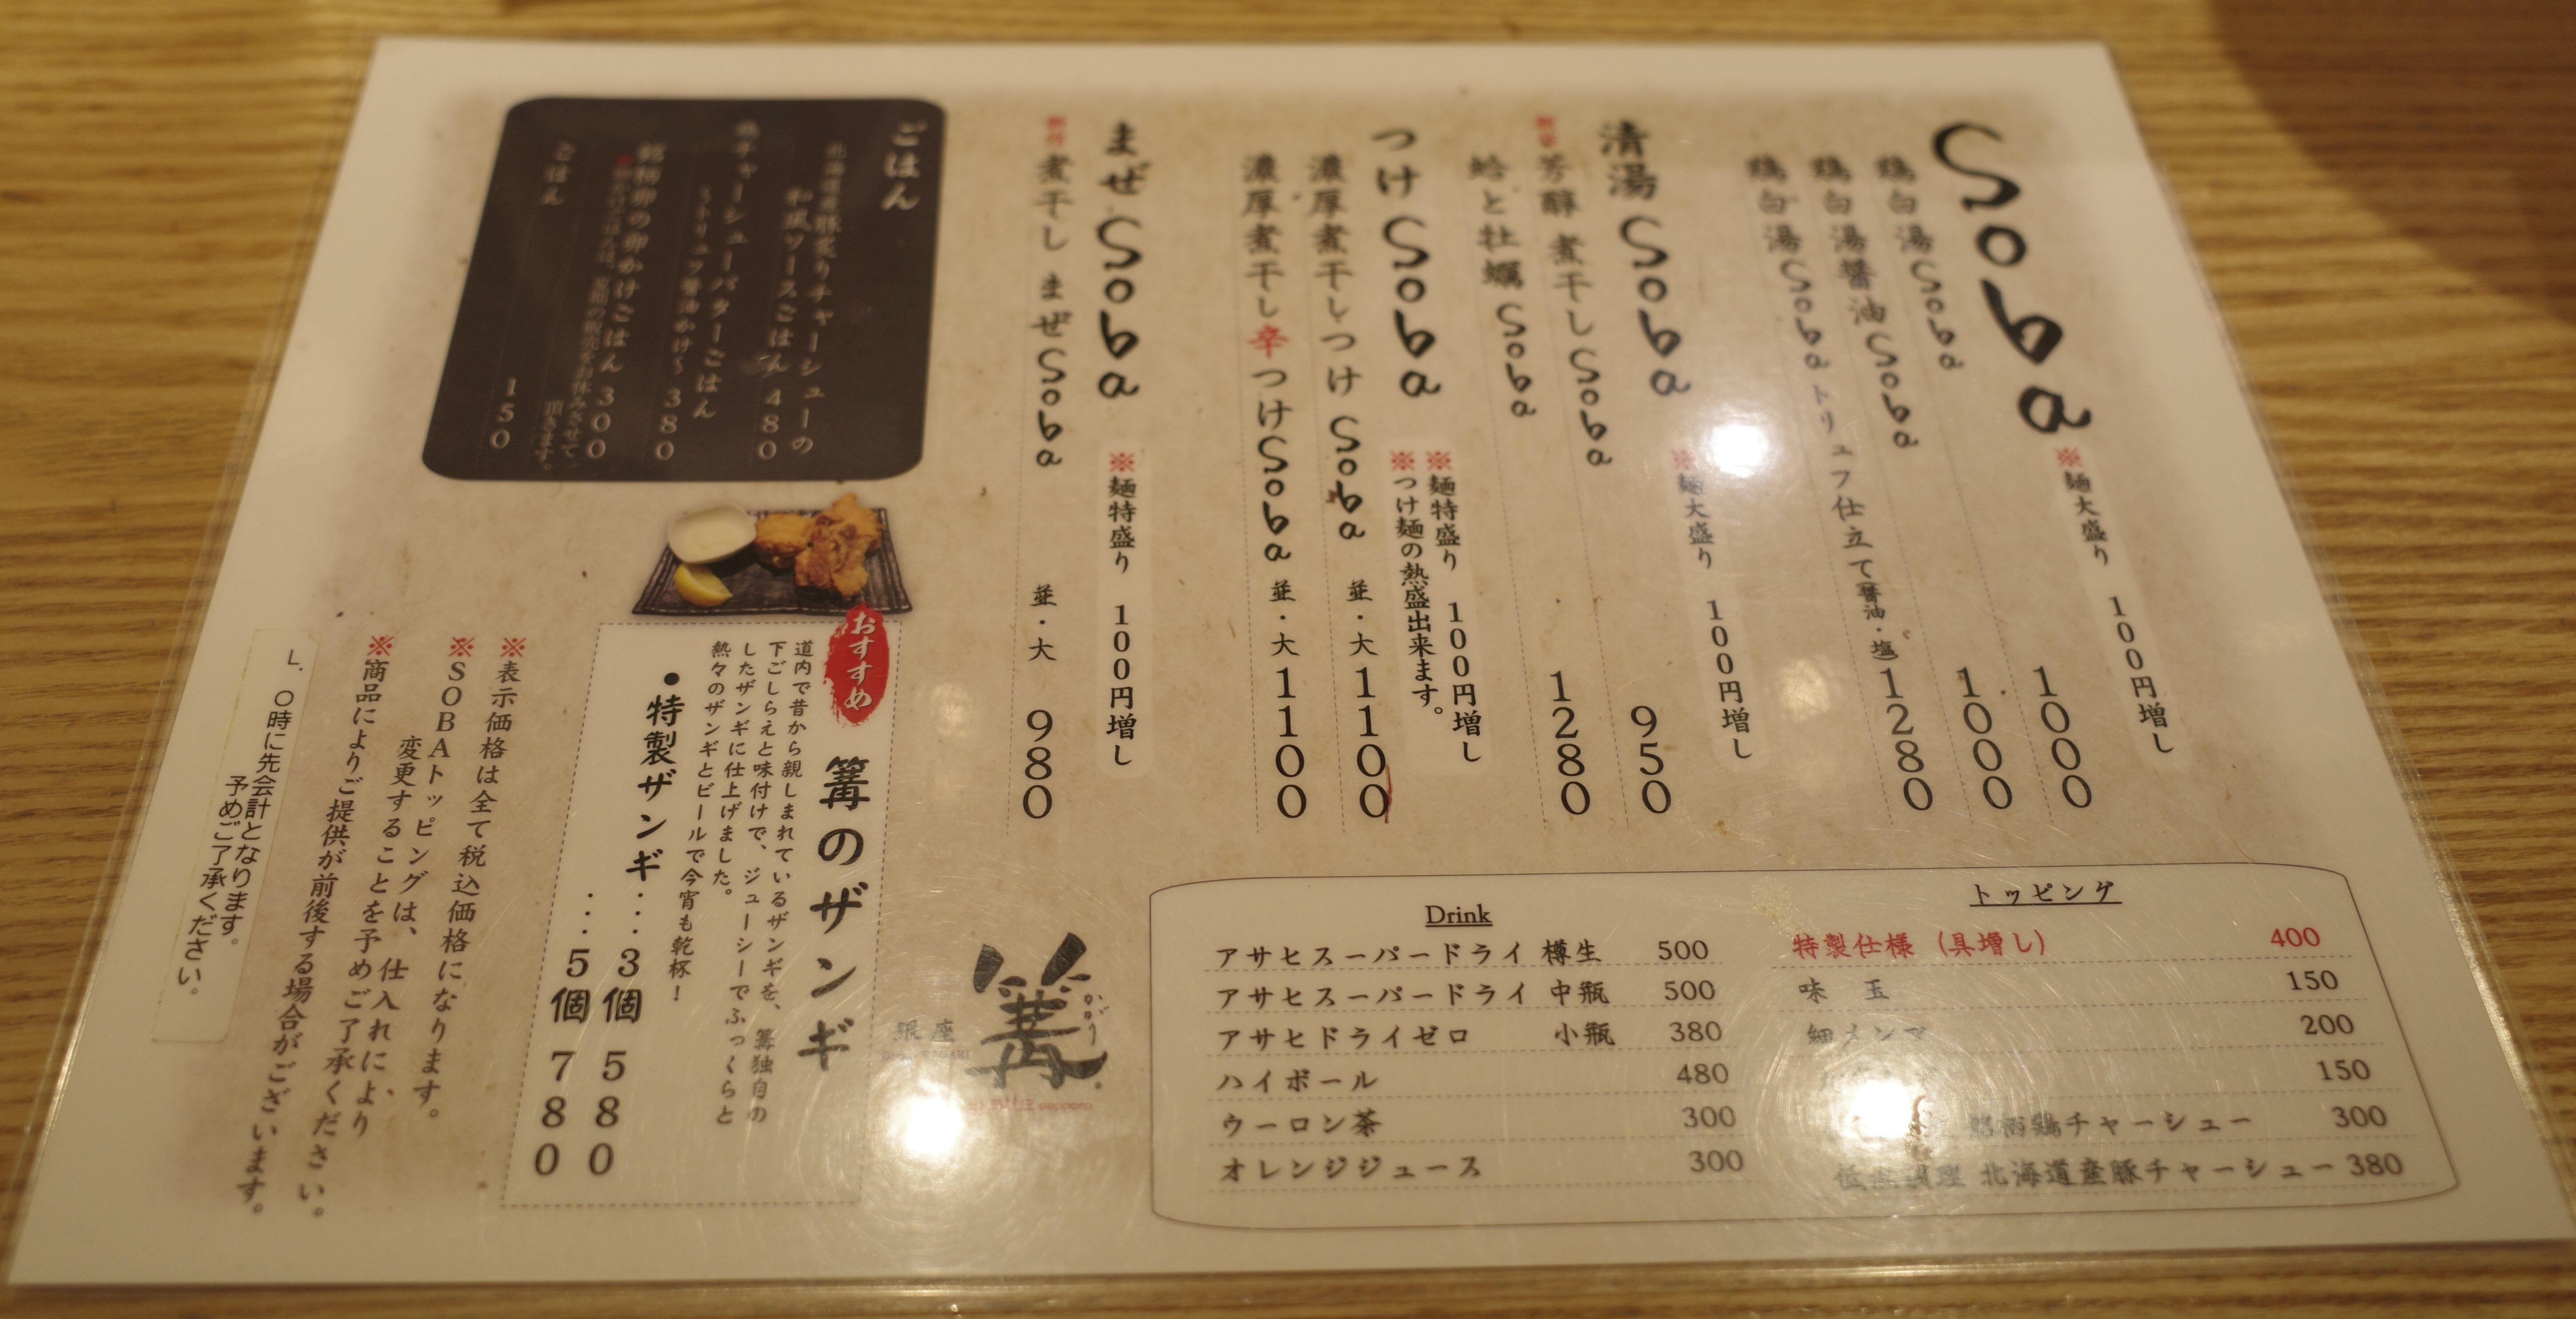 Soba
※麺大盛り 100円増し
鶏白湯Soba 1000
鶏白湯醤油Soba 1000
鶏白湯Soba トリュフ仕立て(醤油・塩) 1280
清湯Soba
※麺大盛り 100円増し
芳醇 煮干しSoba 950
蛤と牡蠣Soba 1280
つけSoba
※麺特盛り 100円増し
※つけ麺の熱盛出来ます。
濃厚煮干しつけSoba 並・大 1100
濃厚煮干し辛つけSoba 並・大 1100
まぜSoba
※麺特盛り 100円増し
煮干し まぜSoba 並・大 980
ごはん
北海道産豚炙りチャーシューの
和風ソースごはん 480
鶏チャーシューバターごはん
〜トリュフ醤油かけ〜 380
卵の卵かけごはん 300
※卵かけごはんは、夏期の販売をお休みさせて
頂きます。
ごはん 150
おすすめ
篝のザンギ
道内で昔から親しまれているザンギを、篝独自の
下ごしらえと味付けで、ジューシーでふっくらと
したザンギに仕上げました。
熱々のザンギとビールで今宵も乾杯!
●特製ザンギ…3個 580
…5個 780
※表示価格は全て税込価格になります。
※SOBAトッピングは、仕入れにより
変更することを予めご了承ください。
※商品によりご提供が前後する場合がございます。
L.O時に先会計となります。
予めご了承ください。
銀座
篝
かがり
トッピング
特製仕様(具増し) 400
味 玉 150
細メンマ 200
150
鶏チャーシュー 300
低温調理 北海道産豚チャーシュー 380
Drink
アサヒスーパードライ 樽生 500
アサヒスーパードライ 中瓶 500
アサヒドライゼロ 小瓶 380
ハイボール 480
ウーロン茶 300
オレンジジュース 300